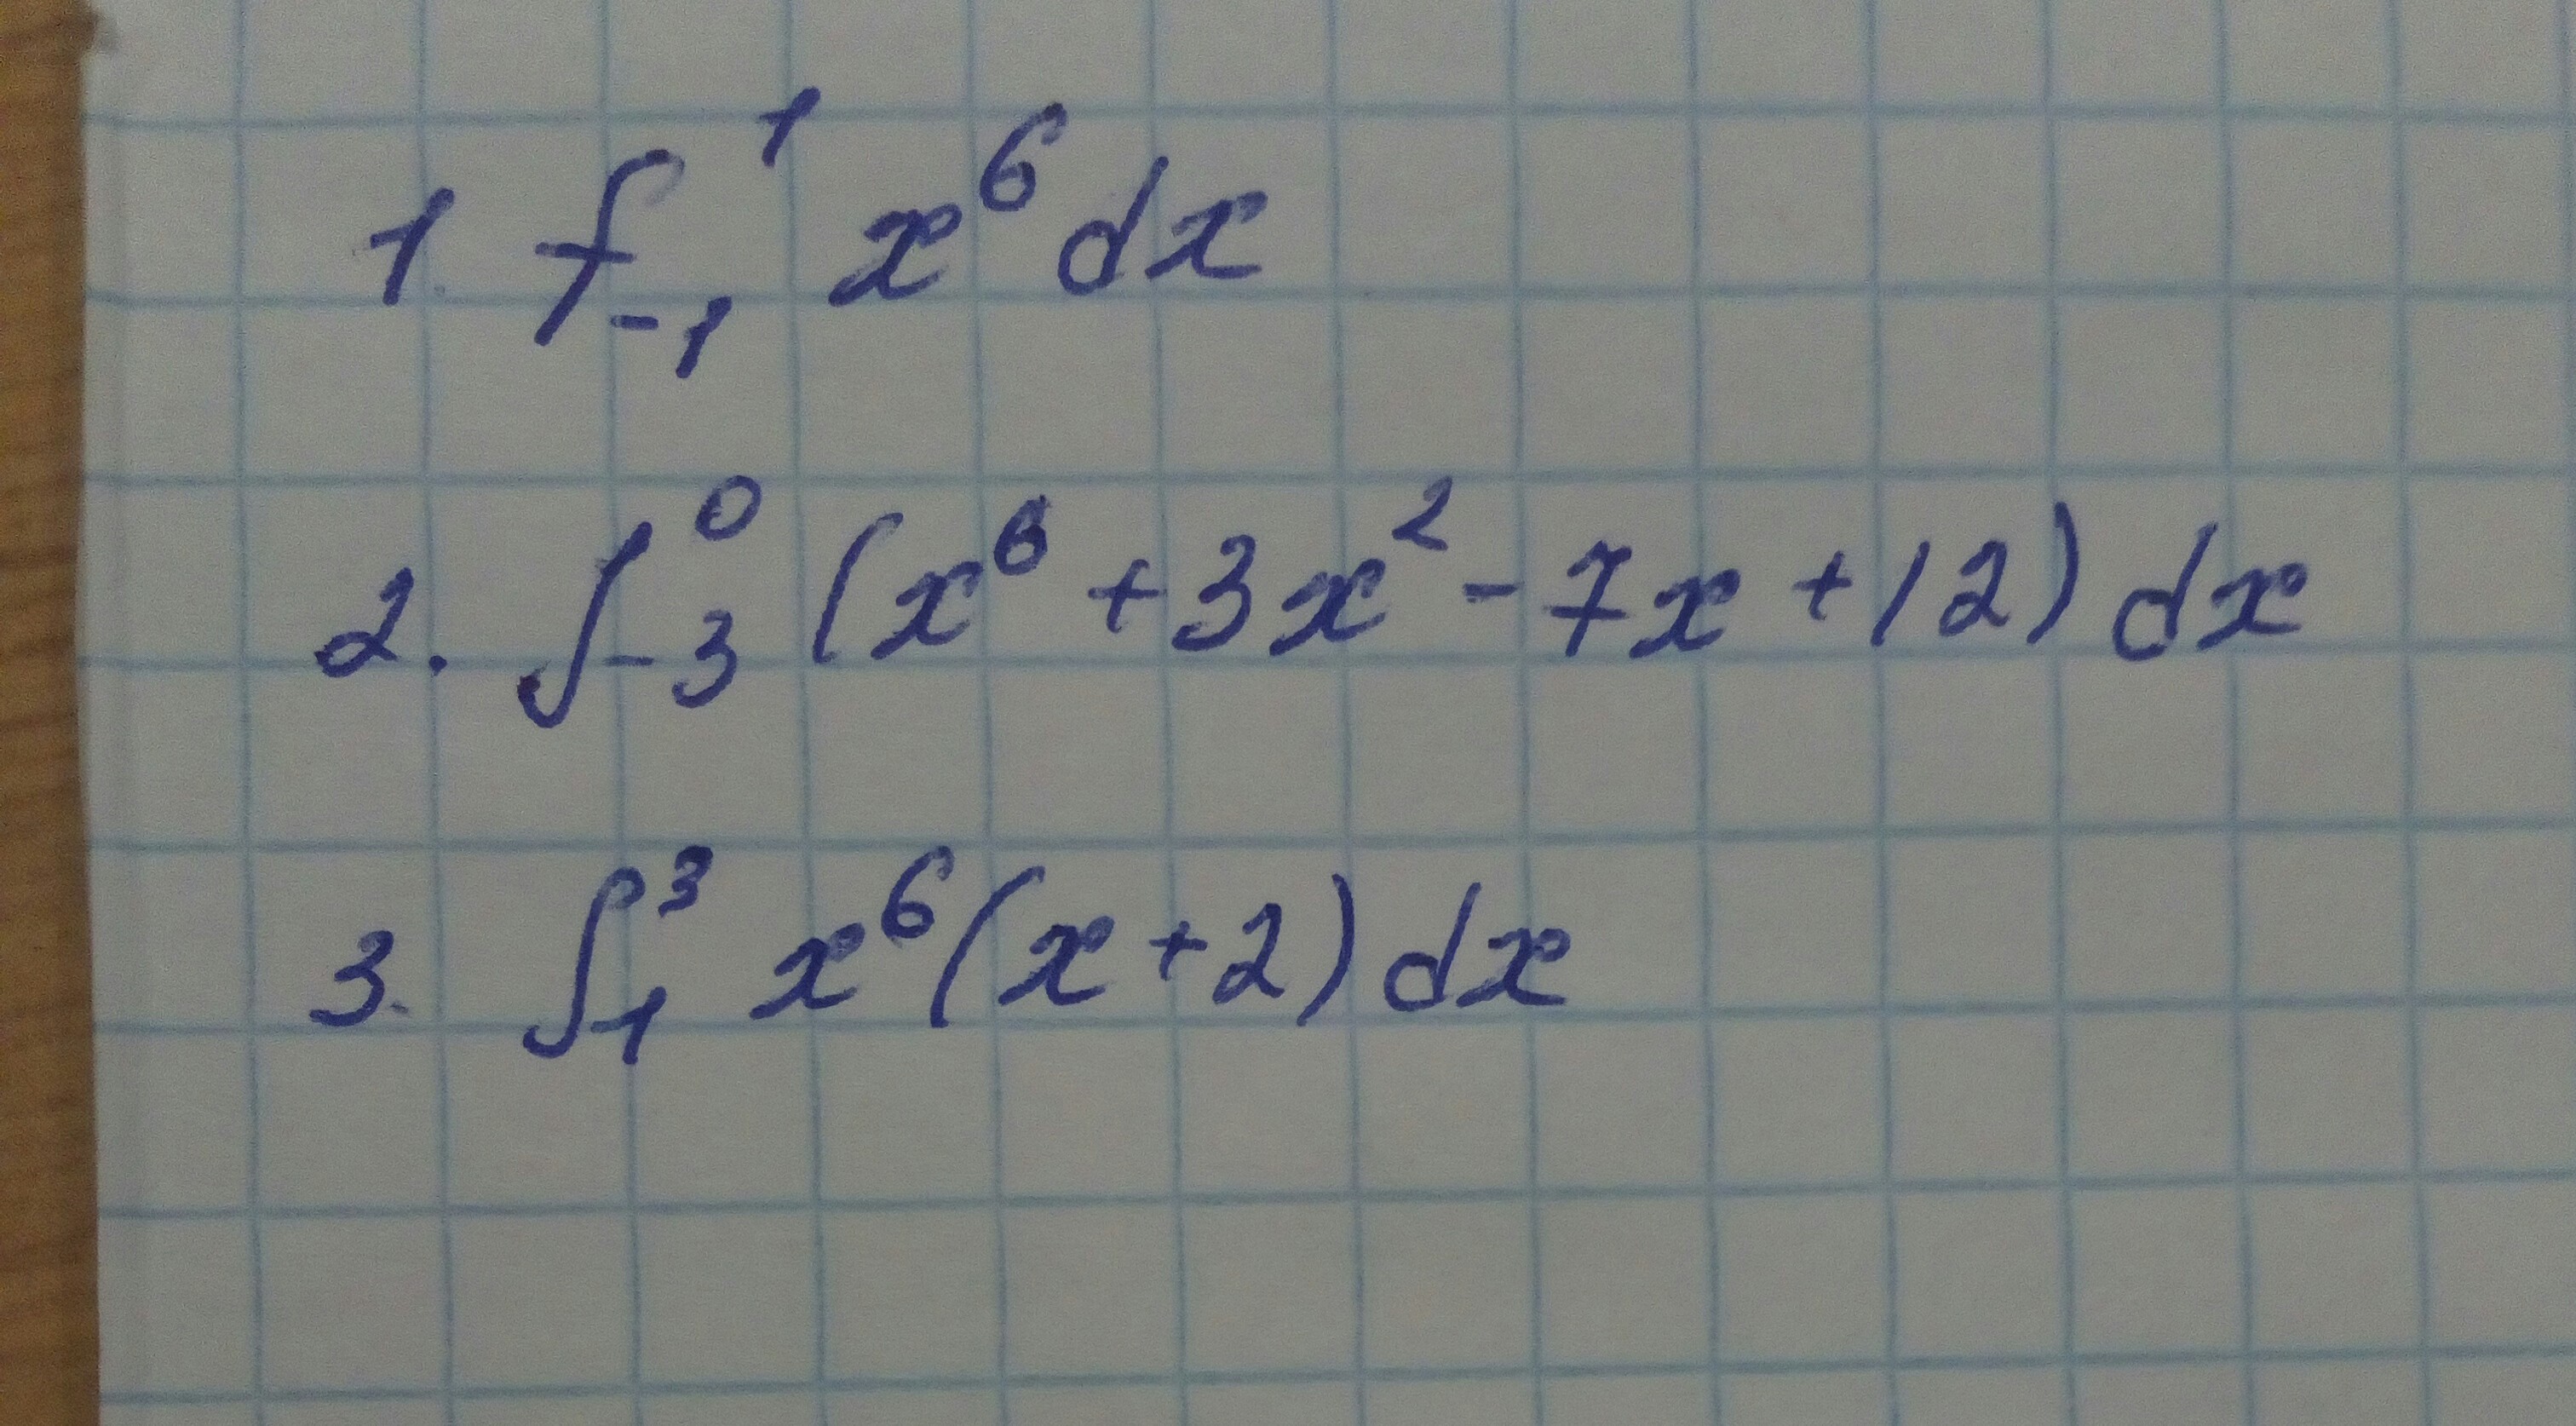 1. f₋₁¹ x⁶ dx
2. ∫₋₃⁰ (x⁶ + 3x² - 7x + 12) dx
3. ∫₁³ x⁶(x + 2) dx